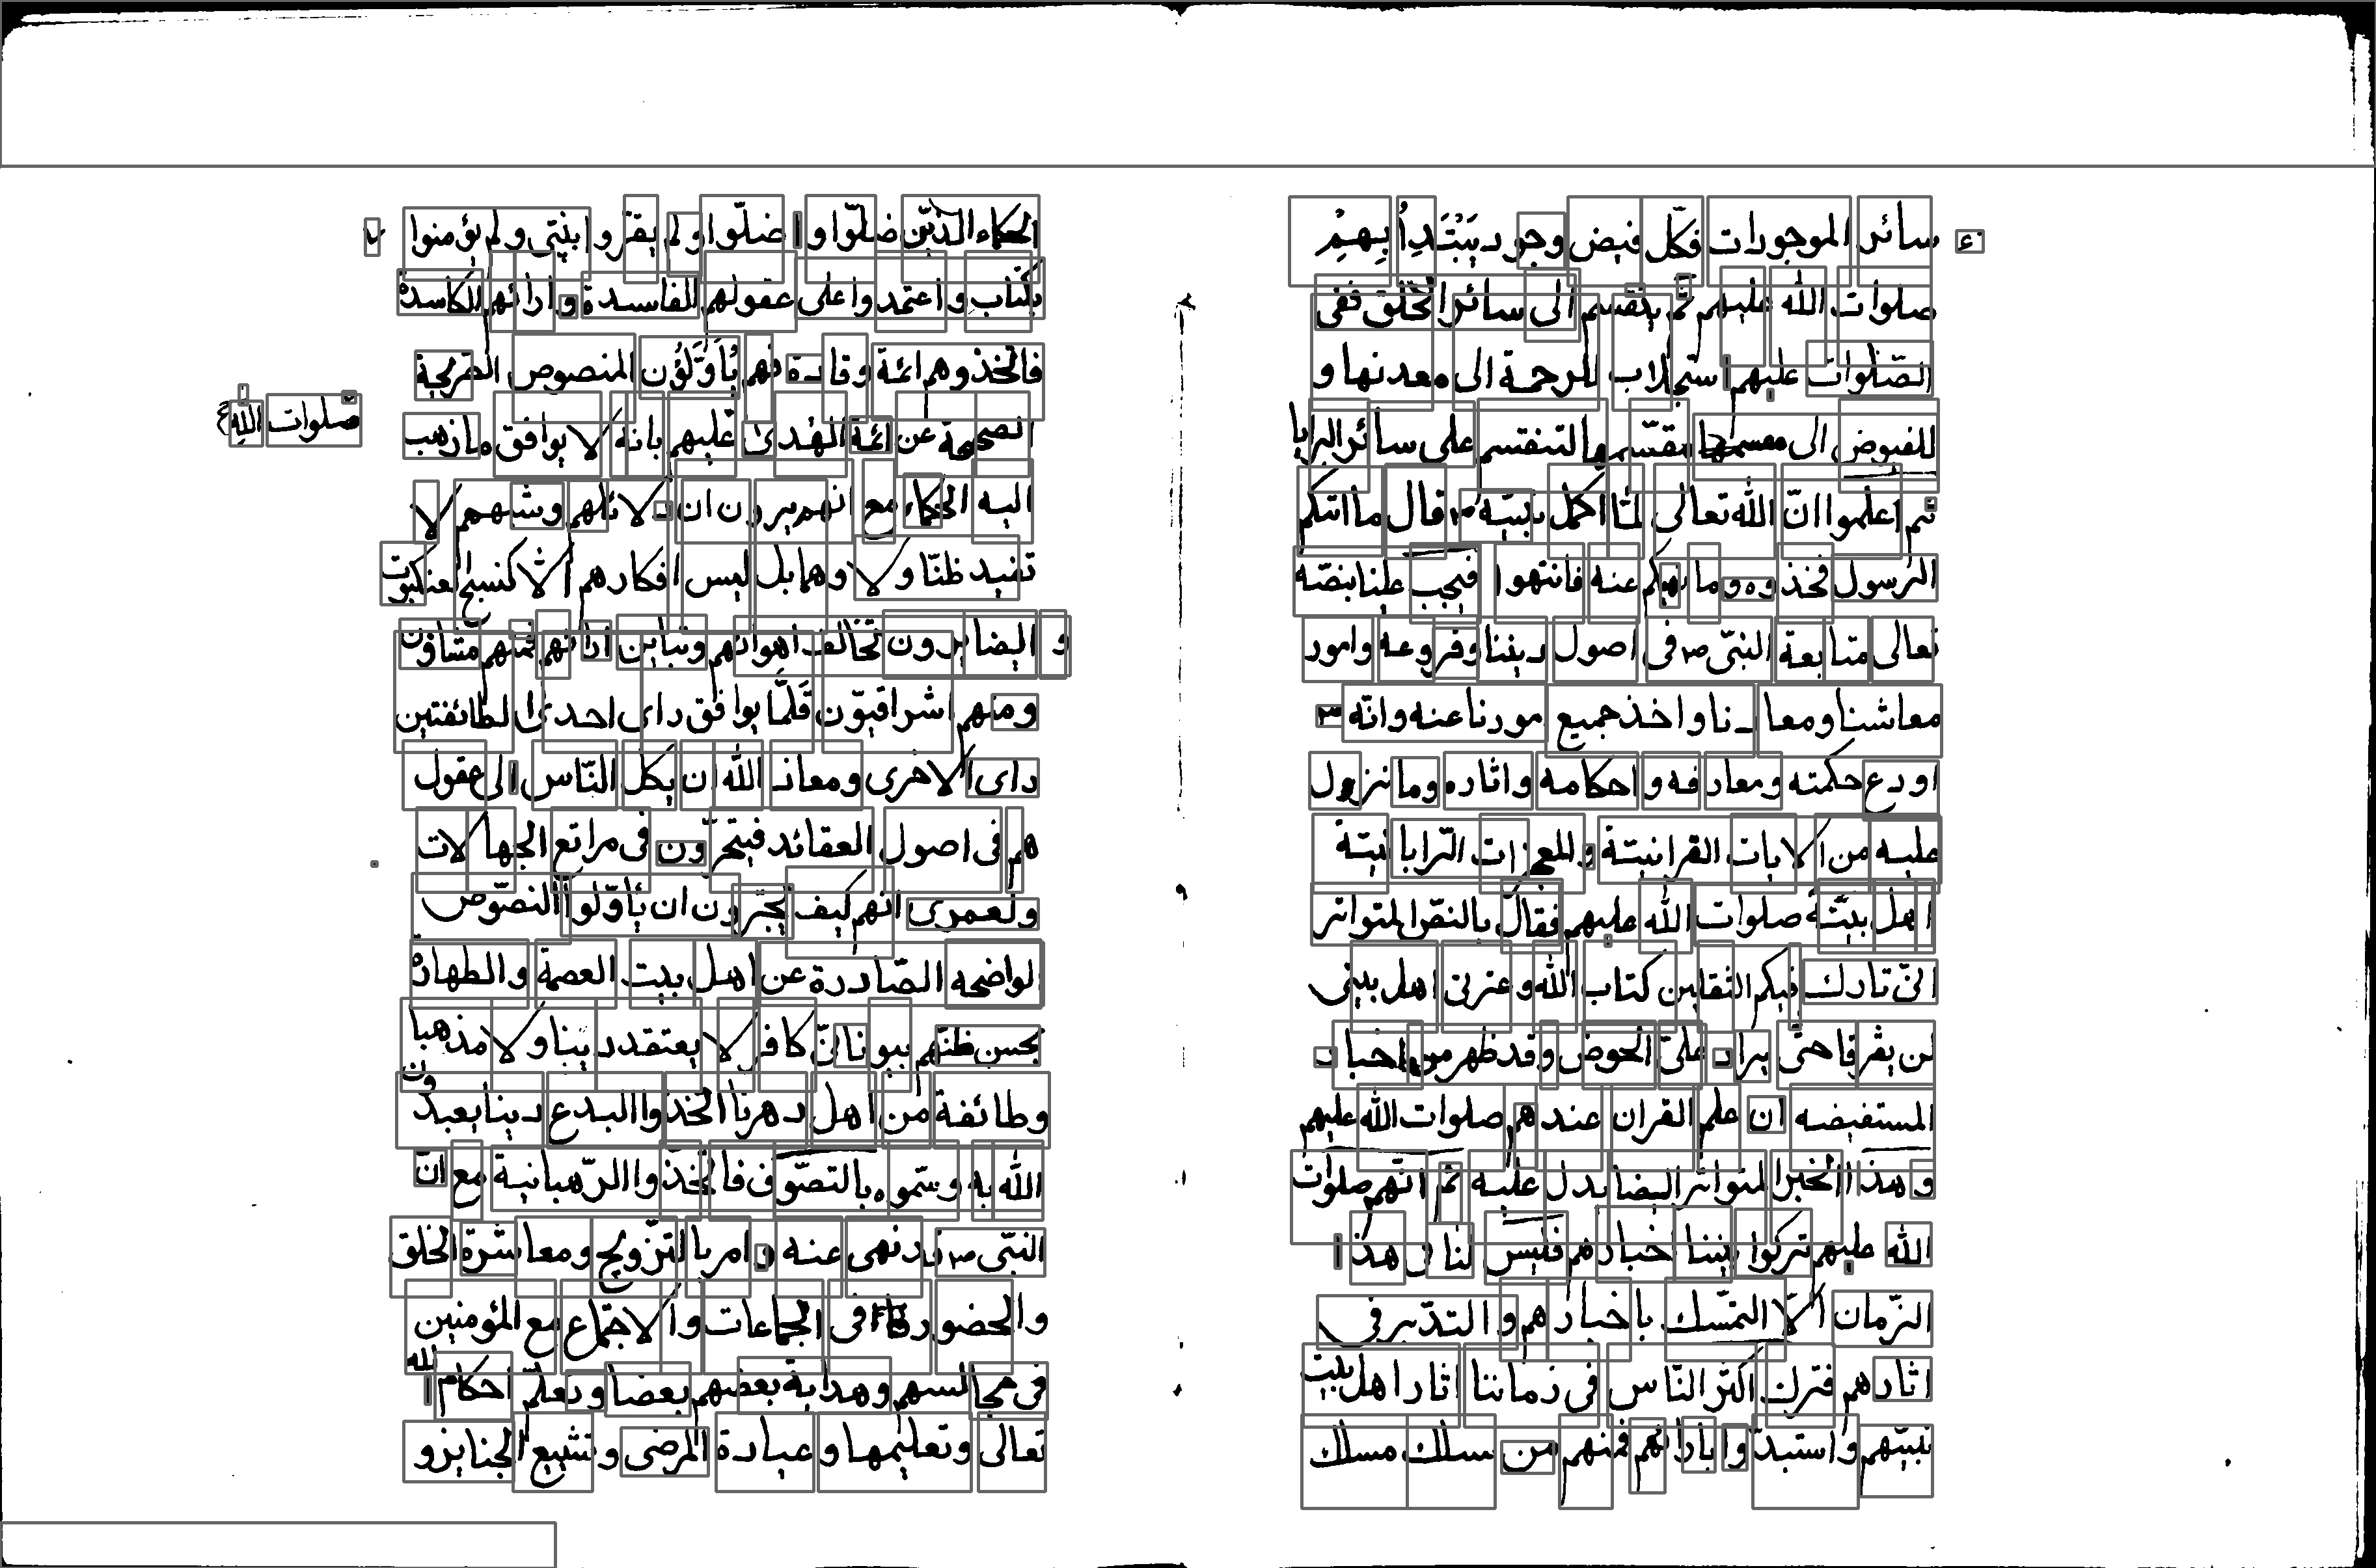 سائر الموجودات فكل فيض وجود يبتدأ بهم
صلوات الله عليهم ثم ينقسم الى سائر الخلق ففى
الصلوات عليهم استجلاب للرحمة الى معدنها و
للفيوض الى مقسمها والتنقسم على سائر البرايا
ثم اعلموا ان الله تعالى لما اكمل نبيه ص قال ما اتيكم
الرسول فخذوه وما نهيكم عنه فانتهوا فيجب علينا بنصه
تعالى متابعة النبى ص فى اصول ديننا وفروعه وامور
معاشنا ومعادنا واخذ جميع امورنا عنه وانه ص
اودع حكمته ومعارفه واحكامه واثاره وما نزول
عليه من الايات القرانية والمعجزات الربانية
اهل بيته صلوات الله عليهم فقال بالنص المتواتر
انى تارك فيكم الثقلين كتاب الله وعترتى اهل بيتى
لن يفترقا حتى يردا على الحوض وقد ظهر من اخبار
المستفيضه ان علم القران عندهم صلوات الله عليهم
وهذا الخبر المتواتر ايضا يدل عليه ثم انهم صلوات
الله عليهم تركوا بيننا اخبارهم فليس لنا فى هذا
الزمان الا التمسك باخبارهم والتدبر فى
اثارهم فترك اكثر الناس فى زماننا اثار اهل بيت
نبيهم واستبدوا بارائهم فمنهم من سلك مسلك
الحكماء الذين ضلوا واضلوا ولم يقروا بنبى ولم يؤمنوا
بكتاب واعتمدوا على عقولهم الفاسدة وارائهم الكاسدة
فاتخذوهم ائمة وقادة فهم يأولون النصوص الصريحة
الصحيحة عن ائمة الهدى عليهم بانه لا يوافق ما ذهب
صلوات الله
اليه الحكماء مع انهم يرون ان دلائلهم وشبههم لا
تفيد ظنا ولا وهما بل ليس افكارهم الا كنسج العنكبوت
وايضا يرون تخالف اهوائهم وتباين ارائهم فمنهم مشاؤن
ومنهم اشراقيون قلما يوافق راى احدى الطائفتين
راى الاخرى ومعاذ الله ان يكل الناس الى عقول
هم فى اصول العقائد فيتحيرون فى مراتع الجهالات
ولعمرى انهم كيف يجترون ان يأولوا النصوص
الواضحه الصادرة عن اهل بيت العصمة والطهارة
بحسن ظنهم بيونانى كافر لا يعتقد دينا ولا مذهبا
وطائفة من اهل دهرنا اتخذوا البدع دينا يعبدون
الله به وسموه بالتصوف فاتخذوا الرهبانية مع ان
النبى ص قد نهى عنه وامر بالتزويج ومعاشرة الخلق
والحضور فى الجماعات والاجتماع مع المؤمنين
فى مجالسهم وهداية بعضهم بعضا وتعلم احكام الله
تعالى وتعليمها وعيادة المرضى وتشييع الجنايز و